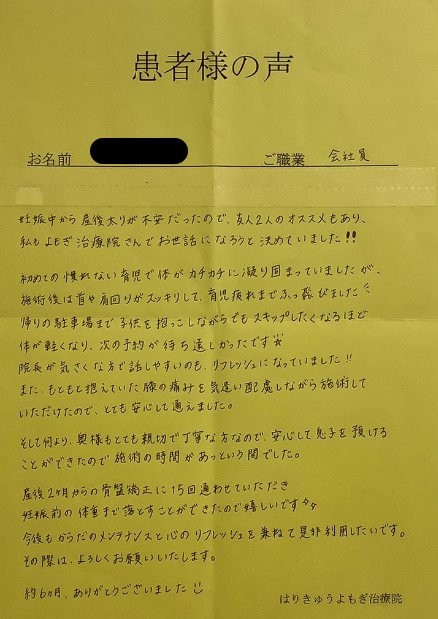 患者様の声
お名前 ご職業 会社員
妊娠中から産後太りが不安だったので、友人2人のオススメもあり、
私もよもぎ治療院さんでお世話になろうと決めていました!!
初めての慣れない育児で体がカチカチに凝り固まっていましたが、
施術後は首や肩回りがスッキリして、育児疲れまでふっ飛びました
帰りの駐車場まで子供を抱っこしながらでもスキップしたくなるほど
体が軽くなり、次の予約が待ち遠しかったです
院長が気さくな方で話しやすいのも、リフレッシュになっていました!!
また、もともと抱えていた膝の痛みを気遣い配慮しながら施術して
いただけたので、とても安心して通えました。
そして何より、奥様もとても親切で丁寧な方なので、安心して息子を預ける
ことができたので施術の時間があっという間でした。
産後2ヶ月からの骨盤矯正に15回通わせていただき
妊娠前の体重まで落とすことができたので嬉しいです
今後もからだのメンテナンスと心のリフレッシュを兼ねて是非利用したいです。
その際は、よろしくお願いいたします。
約6ヶ月、ありがとうございました
はりきゅうよもぎ治療院